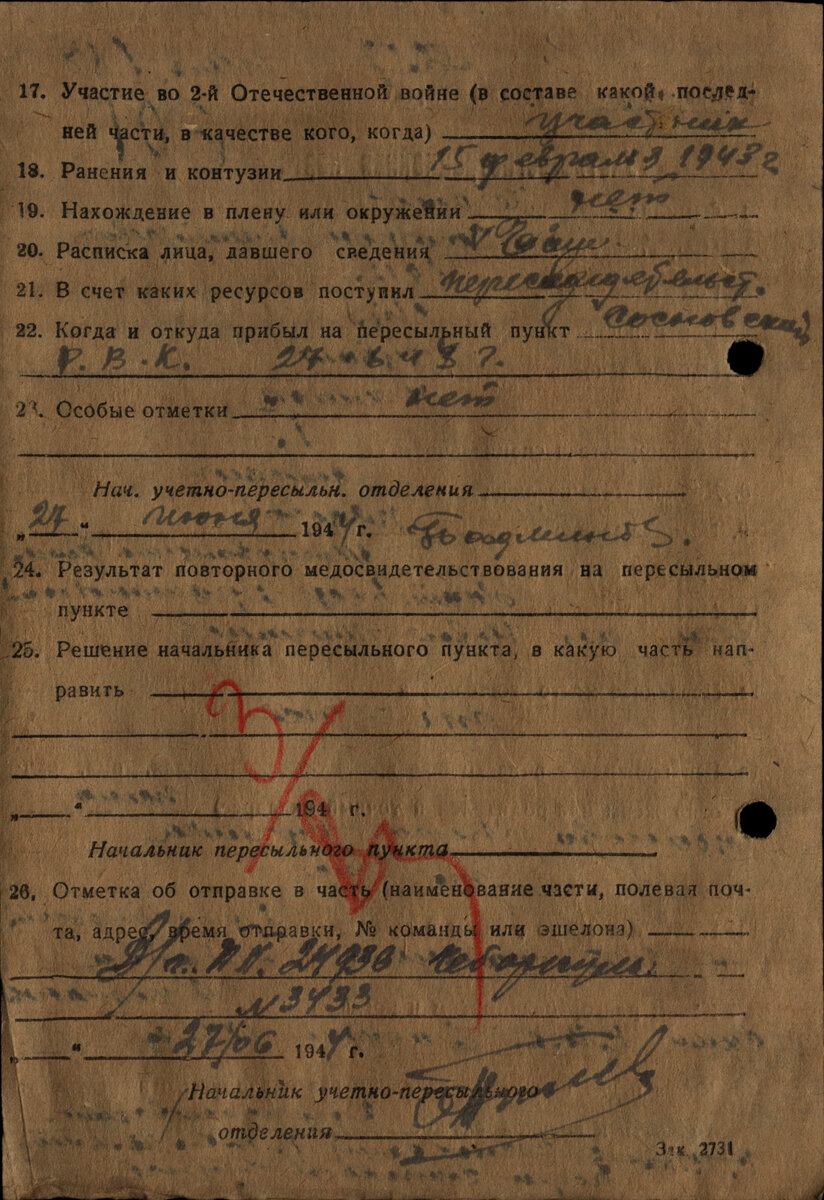 17. Участие во 2-й Отечественной войне (в составе какой послед-
ней части, в качестве кого, когда) участник
18. Ранения и контузии 15 февраля 1943 г
19. Нахождение в плену или окружении нет
20. Расписка лица, давшего сведения
21. В счет каких ресурсов поступил
22. Когда и откуда прибыл на пересыльный пункт Сосновский
Р.В.К.
23. Особые отметки нет
Нач. учетно-пересыльн. отделения
„27“ июня 1944 г.
24. Результат повторного медосвидетельствования на пересыльном
пункте
25. Решение начальника пересыльного пункта, в какую часть нап-
равить
3/
„ “ 194 г.
Начальник пересыльного пункта
26. Отметка об отправке в часть (наименование части, полевая поч-
та, адрес, время отправки, № команды или эшелона)
П.П. 24936 Чебаркуль
№ 3433
„ “ 27/06 1944 г.
Начальник учетно-пересыльного
отделения
Зак. 2731